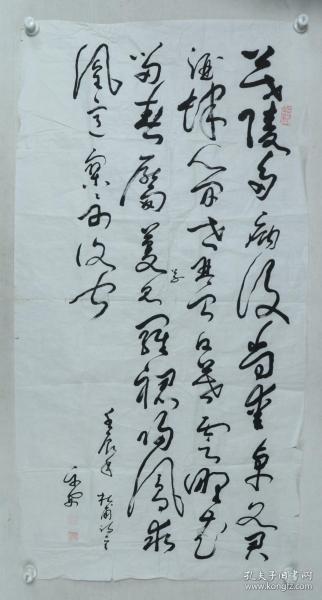 茂陵多病後尚愛卓文君
酒肆人間世琴台日暮雲野花
留寶靨蔓草見羅裙歸鳳求
凰意寥寥不復聞
壬辰年 杜甫詩
孔夫子旧书网